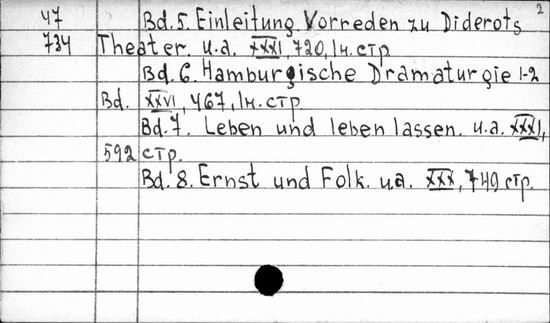 2
47 Bd. 5. Einleitung. Vorreden zu Diderots
734 Theater. u.a. XXXI, 720, 1н. стр
Bd. 6. Hamburgische Dramaturgie 1-2
Bd. XXVI, 467, 1н. стр.
Bd. 7. Leben und leben lassen. u.a. XXXI,
592 стр.
Bd. 8. Ernst und Folk. u.a. XXX, 749 стр.